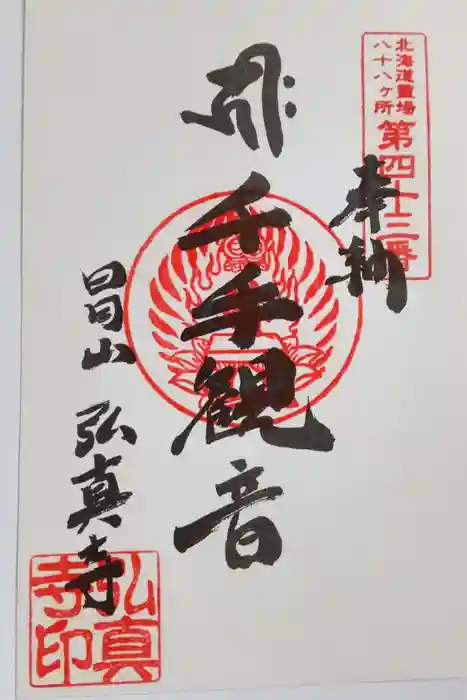 北海道霊場
八十八ヶ所
第四十三番
奉納
千手観音
昌山 弘真寺
弘真
寺印